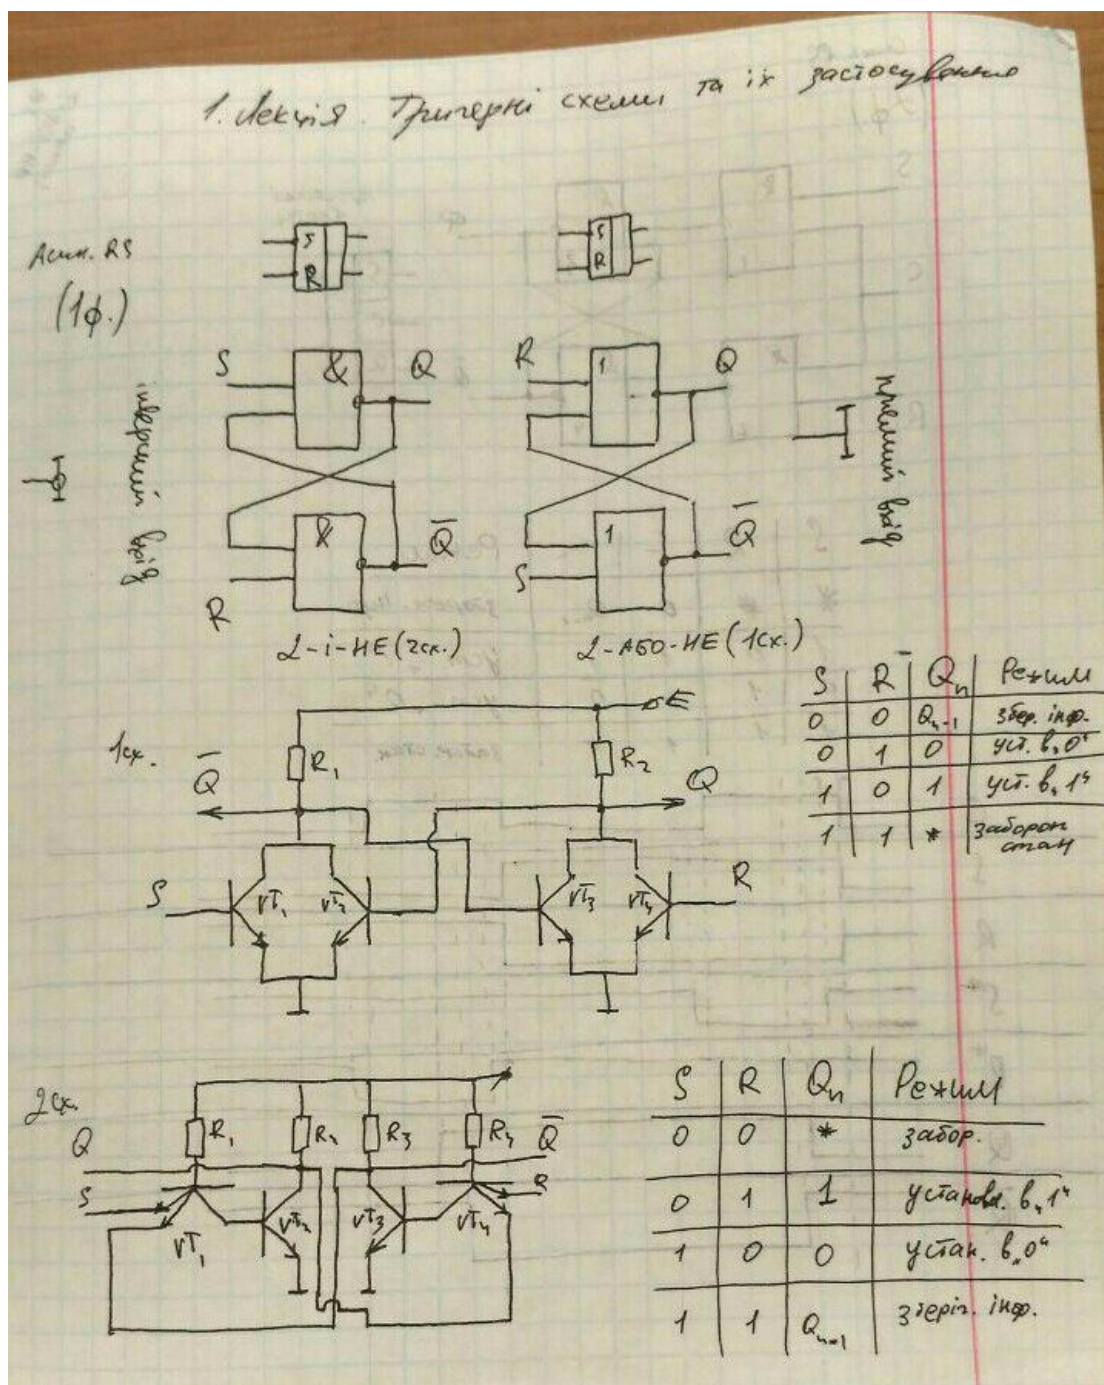 1. Лекція. Тригерні схеми та їх застосування
Асин. RS
(1ф.)
S
R
S
R
інверсний вхід
S
&
Q
&
Q̅
R
2-і-НЕ (2сх.)
R
1
Q
1
Q̅
S
2-АБО-НЕ (1сх.)
прямий вхід
S R Qn Режим
0 0 Qn-1 збер. інф.
0 1 0 уст. в „0“
1 0 1 уст. в „1“
1 1 * заборон
стан
1сх.
E
R1
R2
Q̅
Q
S
VT1
VT2
VT3
VT4
R
2сх.
Q
R1
R2
R3
R4
Q̅
S
R
VT1
VT2
VT3
VT4
S R Qn Режим
0 0 * забор.
0 1 1 установ. в „1“
1 0 0 устан. в „0“
1 1 Qn-1 зберіг. інф.